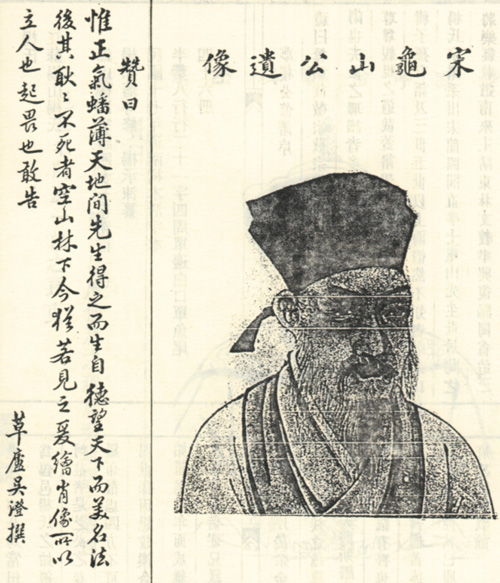 宋龜山公遺像
贊曰
惟正氣蟠薄天地间先生得之而生自德望天下而美名法
後其耿〻不死者空山林下今猶若見之爰繪肖像所以
立人也起畏也敢告
草廬吳澄撰